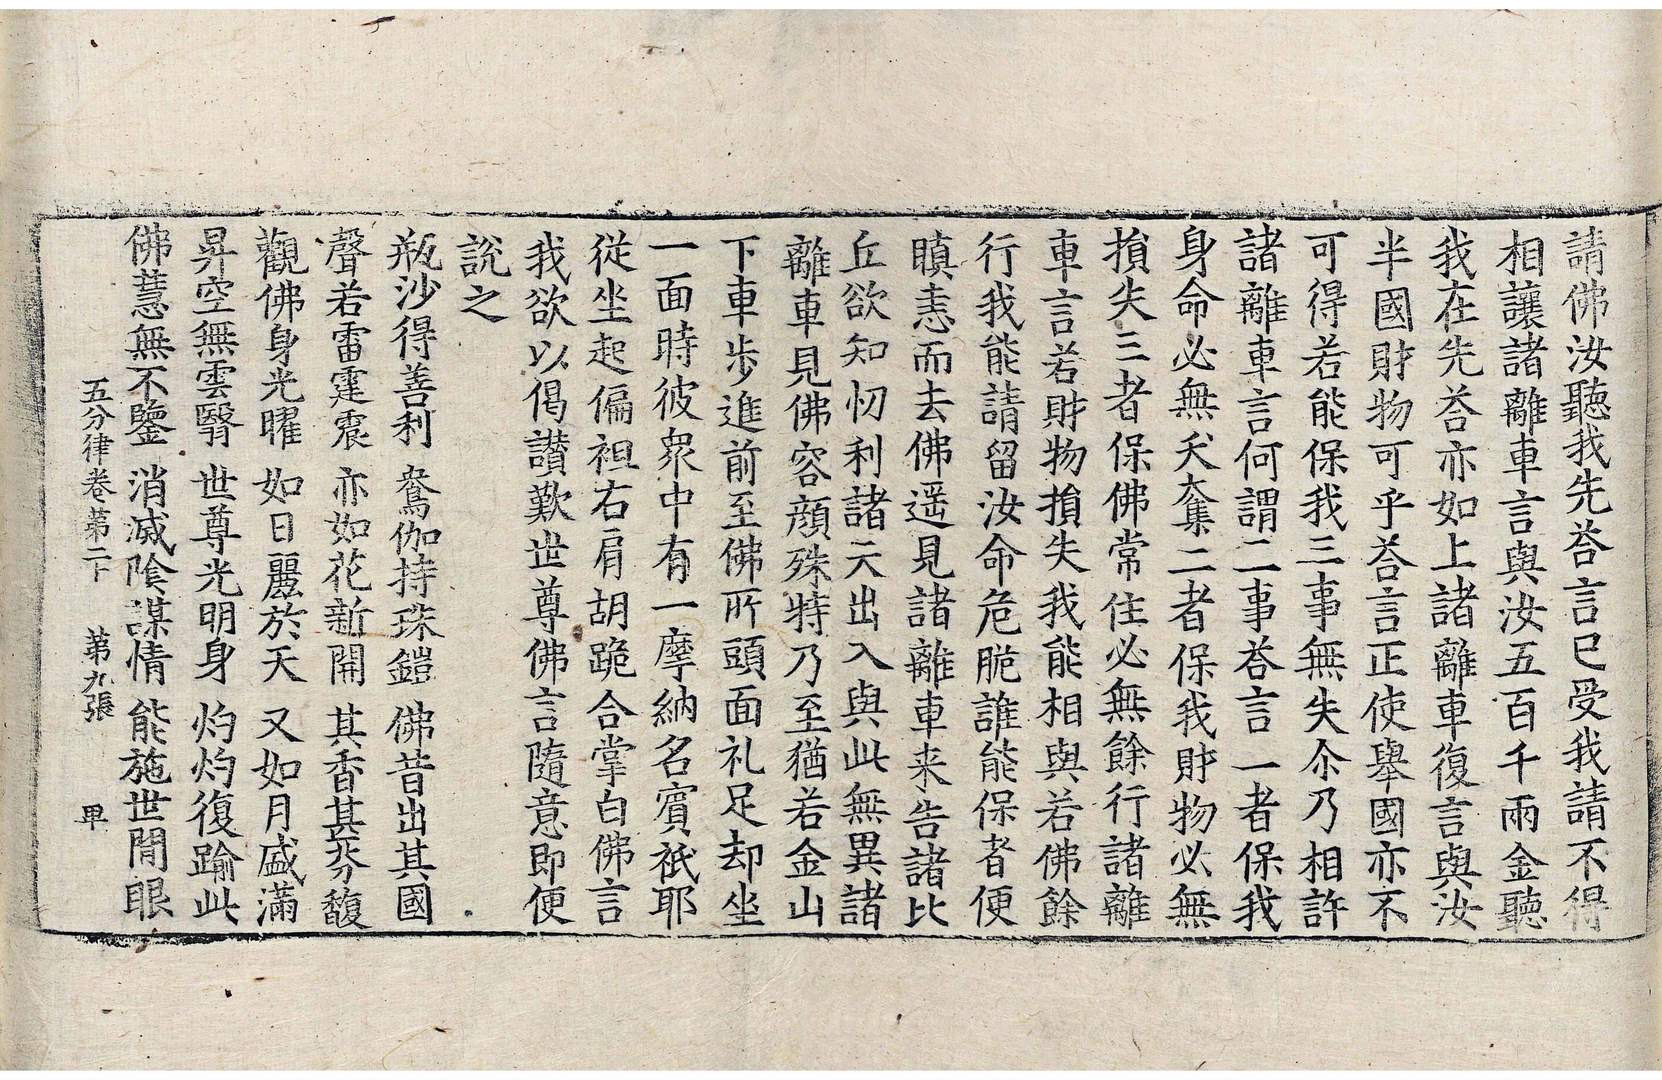 請佛汝聽我先荅言已受我請不得
相讓諸離車言與汝五百千兩金聽
我在先荅亦如上諸離車復言與汝
半國財物可乎荅言正使舉國亦不
可得若能保我三事無失尒乃相許
諸離車言何謂二事荅言一者保我
身命必無夭奪二者保我財物必無
損失三者保佛常住必無餘行諸離
車言若財物損失我能相與若佛餘
行我能請留汝命危脆誰能保者便
瞋恚而去佛遥見諸離車来告諸比
丘欲知忉利諸天出入與此無異諸
離車見佛容顔殊特乃至猶若金山
下車步進前至佛所頭面礼足却坐
一面時彼衆中有一摩納名賓祇耶
從坐起偏袒右肩胡跪合掌白佛言
我欲以偈讃歎世尊佛言隨意即便
說之
瓶沙得善利 鴦伽持珠鎧 佛昔出其國
聲若雷霆震 亦如花新開 其香甚芬馥
觀佛身光曜 如日麗於天 又如月盛滿
昇空無雲翳 世尊光明身 灼灼復踰此
佛慧無不鑒 消滅陰謀情 能施世閒眼
五分律卷第二下 第九張 甲